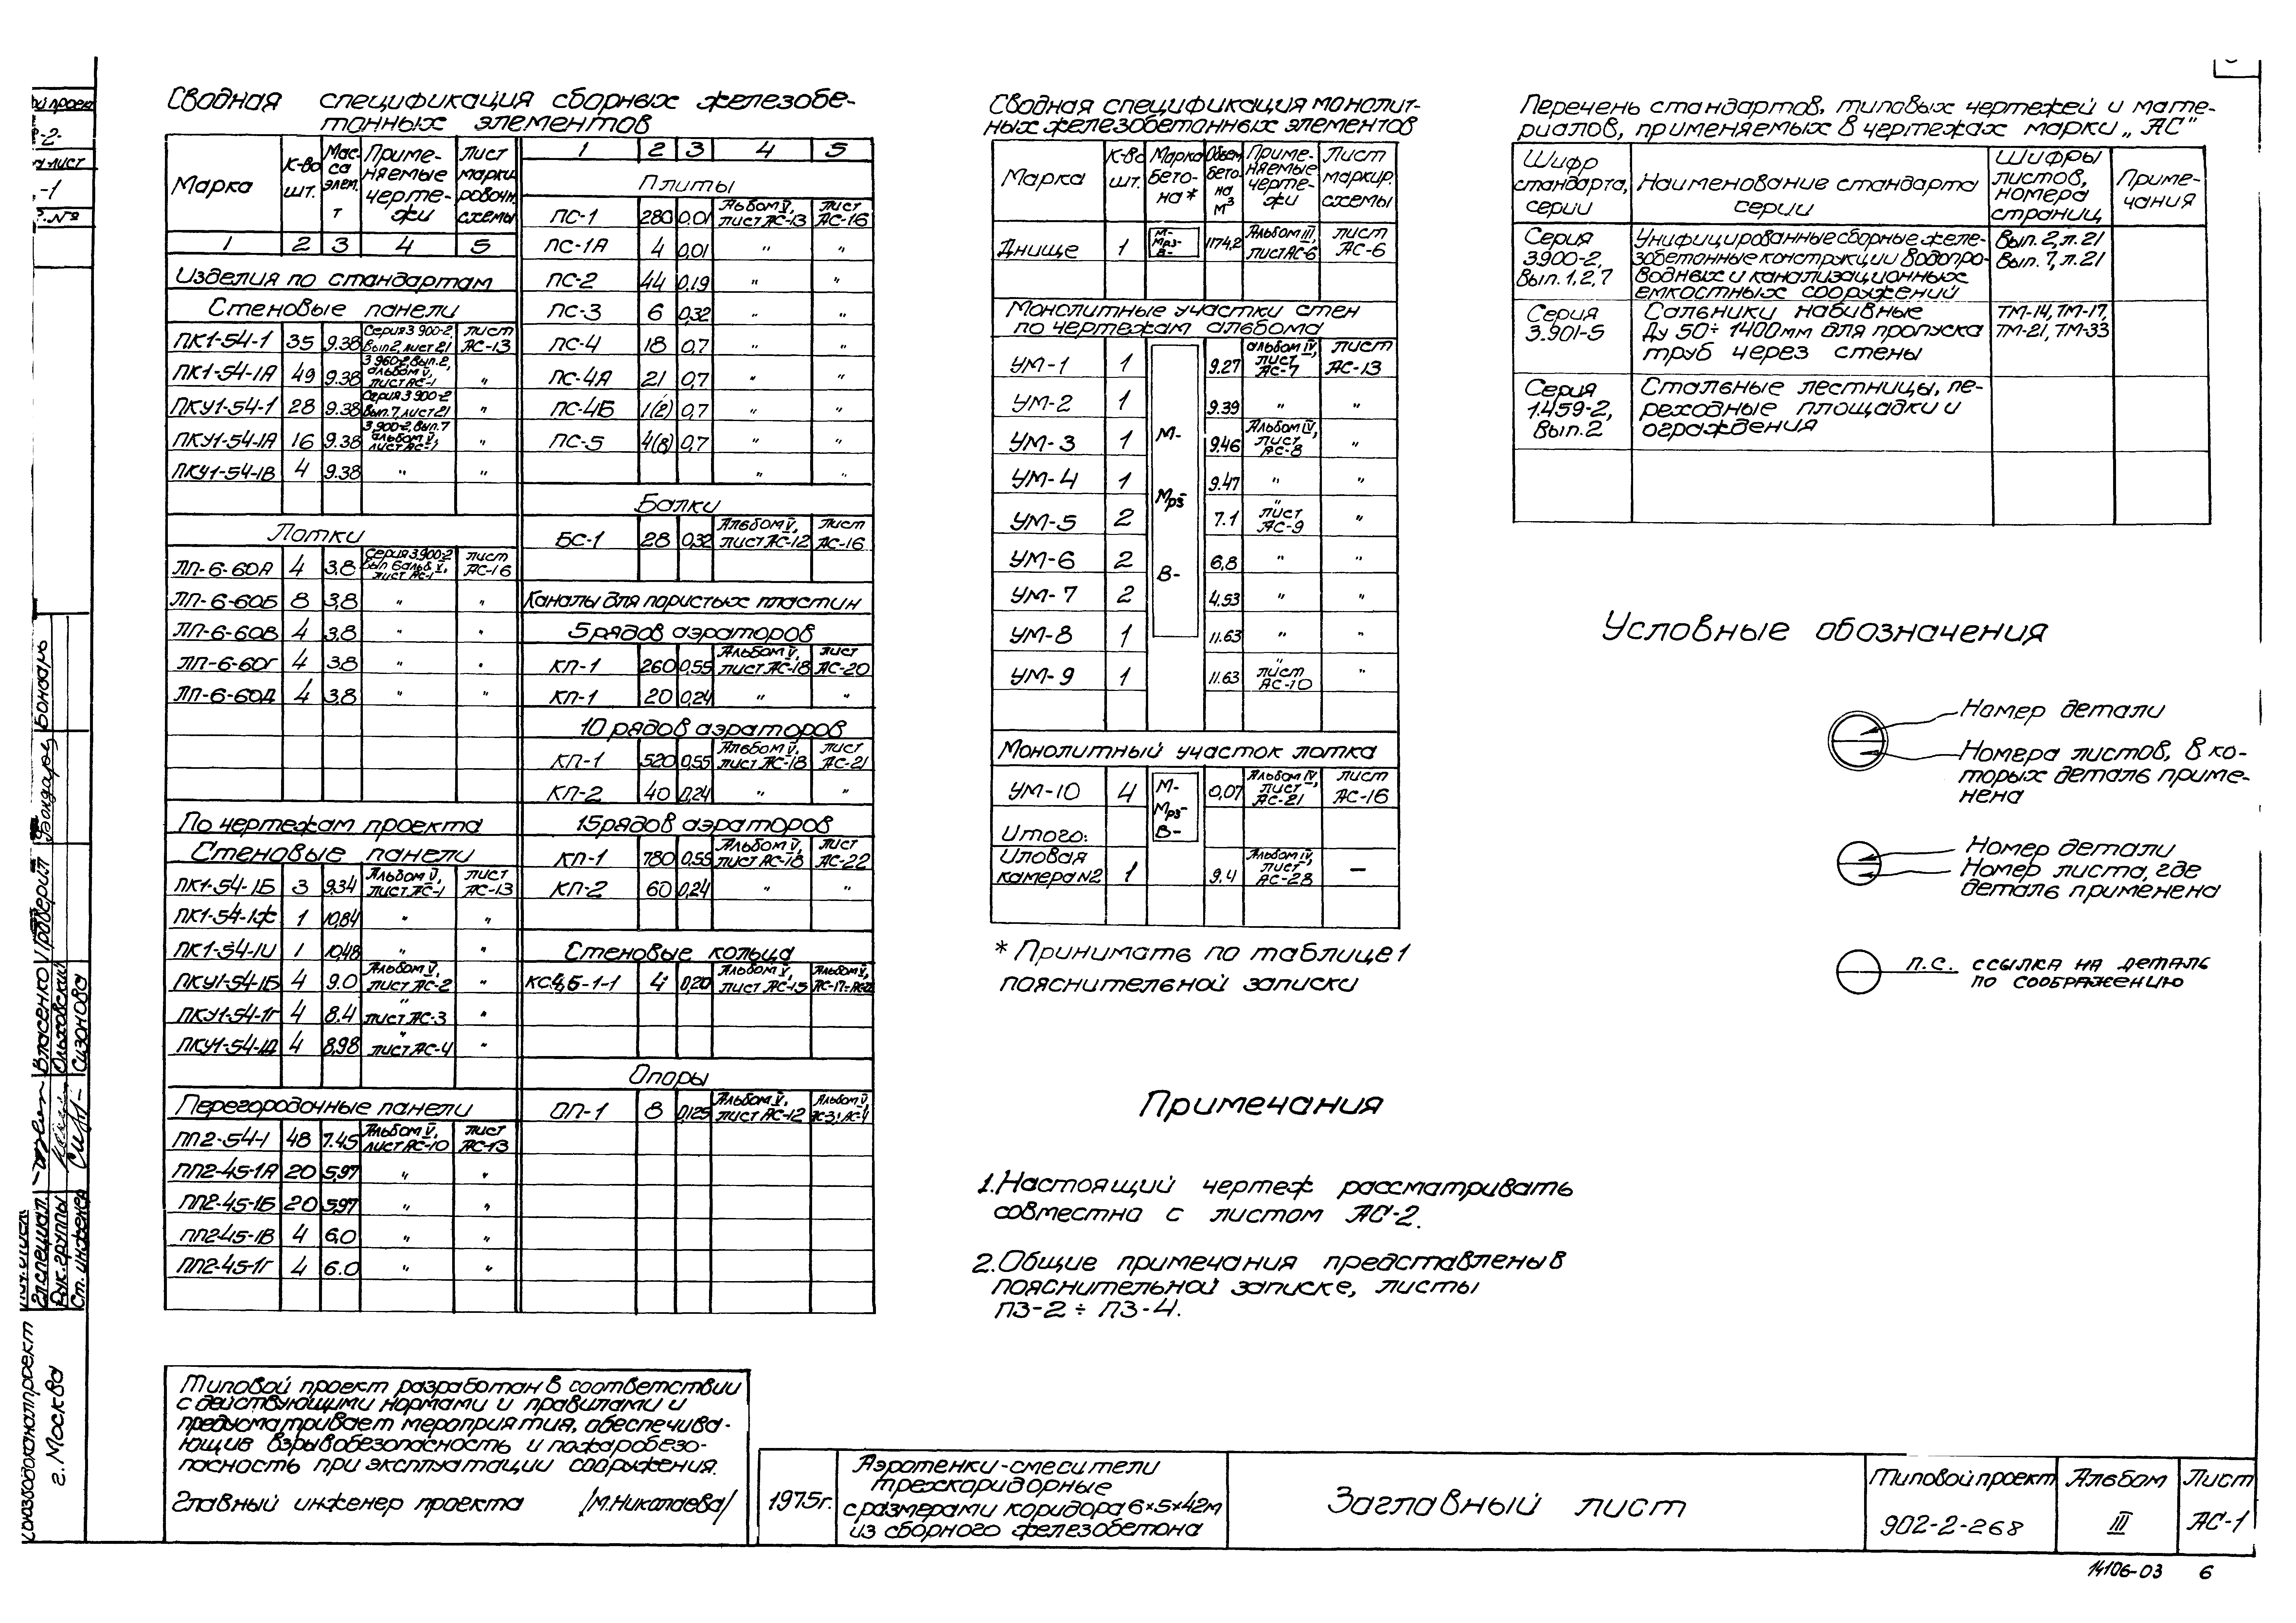 Сводная спецификация сборных железобе-
тонных элементов
Марка К-во шт. Масса элем. т Применяемые чертежи Лист маркировочн. схемы
1 2 3 4 5
Изделия по стандартам
Стеновые панели
ПК1-54-1 35 9.38 Серия 3.900-2, Вып 2, лист 21 лист АС-13
ПК1-54-1А 49 9.38 3.960-2, вып. 2, альбом V, лист АС-1 "
ПКУ1-54-1 28 9.38 Серия 3.900-2 Вып. 7, лист 21 "
ПКУ1-54-1А 16 9.38 3.900-2, Вып. 7 альбом V, лист АС-1 "
ПКУ1-54-1В 4 9.38 " "
Лотки
ЛП-6-60А 4 3,8 Серия 3.900-2 Вып 6 альб. V, лист АС-1 лист АС-16
ЛП-6-60Б 8 3,8 " "
ЛП-6-60В 4 3.8 " "
ЛП-6-60Г 4 3.8 " "
ЛП-6-60Д 4 3.8 " "
По чертежам проекта
Стеновые панели
ПК1-54-1Б 3 9.34 Альбом V, лист АС-1 лист АС-13
ПК1-54-1Ж 1 10,84 " "
ПК1-54-1И 1 10,48 " "
ПКУ1-54-1Б 4 9.0 Альбом V, лист АС-2 "
ПКУ1-54-1Г 4 8.4 " лист АС-3 "
ПКУ1-54-1Д 4 8,98 " лист АС-4 "
Перегородочные панели
ПП2-54-1 48 7.45 Альбом V, лист АС-10 лист АС-13
ПП2-45-1А 20 5,97 " "
ПП2-45-1Б 20 5.97 " "
ПП2-45-1В 4 6.0 " "
ПП2-45-1Г 4 6.0 " "
1 2 3 4 5
Плиты
ПС-1 280 0,01 Альбом V, лист АС-13 Лист АС-16
ПС-1А 4 0,01 " "
ПС-2 44 0.19 " "
ПС-3 6 0,32 " "
ПС-4 18 0,7 " "
ПС-4А 21 0,7 " "
ПС-4Б 1(2) 0,7 " "
ПС-5 4(8) 0,7 " "
" "
Балки
БС-1 28 0,32 Альбом V, лист АС-12 Лист АС-16
Каналы для пористых пластин
5 рядов аэраторов
КП-1 260 0,55 Альбом V, лист АС-18 Лист АС-20
КП-1 20 0,24 " "
10 рядов аэраторов
КП-1 520 0,55 Альбом V, лист АС-18 лист АС-21
КП-2 40 0,24 " "
15 рядов аэраторов
КП-1 780 0,55 Альбом V, лист АС-18 лист АС-22
КП-2 60 0,24 " "
Стеновые кольца
КС4,5-1-1 4 0,20 Альбом V, лист АС-15 Альбом V, АС-17÷
Опоры
ОП-1 8 0,125 Альбом V, лист АС-12 Альбом V,
Сводная спецификация монолит-
ных железобетонных элементов
Марка К-во шт. Марка бетона* Объем бетона м³ Применяемые чертежи Лист маркир. схемы
Днище 1 М- Мрз- В- 1174,2 Альбом III, лист АС-6 лист АС-6
Монолитные участки стен
по чертежам альбома
УМ-1 1 9.27 альбом IV, лист АС-7 лист АС-13
УМ-2 1 9.39 " "
УМ-3 1 М- 9.46 Альбом IV, лист АС-8 "
УМ-4 1 Мрз- 9.47 " "
УМ-5 2 7.1 " лист АС-9 "
УМ-6 2 В- 6,8 " "
УМ-7 2 4.53 " "
УМ-8 1 11.63 " "
УМ-9 1 11.63 " лист АС-10 "
Монолитный участок лотка
УМ-10 4 М- Мрз- В- 0,07 Альбом IV, лист АС-21 лист АС-16
Итого:
Иловая камера №2 1 9.4 Альбом IV, лист АС-28 —
* Принимать по таблице 1
пояснительной записки
Перечень стандартов, типовых чертежей и мате-
риалов, применяемых в чертежах марки „АС"
Шифр стандарта, серии Наименование стандарта серии Шифры листов, номера страниц Примечания
Серия 3.900-2, Вып. 1, 2, 7 Унифицированные сборные желе-
зобетонные конструкции водопро-
водных и канализационных
емкостных сооружений Вып. 2, л. 21 Вып. 7, л. 21
Серия 3.901-5 Сальники набивные
Ду 50÷1400мм для пропуска
труб через стены ТМ-14, ТМ-17, ТМ-21, ТМ-33
Серия 1.459-2, Вып. 2 Стальные лестницы, пе-
реходные площадки и
ограждения
Условные обозначения
Номер детали
Номера листов, в ко-
торых деталь приме-
нена
Номер детали
Номер листа, где
деталь применена
п.с. ссылка на деталь
по соображению
Примечания
1. Настоящий чертеж рассматривать
совместно с листом АС-2.
2. Общие примечания представлены в
пояснительной записке, листы
ПЗ-2 ÷ ПЗ-4.
Типовой проект разработан в соответствии
с действующими нормами и правилами и
предусматривает мероприятия, обеспечива-
ющие взрывобезопасность и пожаробезо-
пасность при эксплуатации сооружения.
Главный инженер проекта /М.Николаева/
1975г.
Аэротенки-смесители
трехкоридорные
с размерами коридора 6×5×42м
из сборного железобетона
Заглавный лист
Типовой проект
902-2-268
Альбом
III
Лист
АС-1
14106-03 6
-2-
-1
Гл.специал. Власенко
Рук.группы Ольховский
Ст. инженер Сизонова
Проверил Бондарь
Бондарь
Союзводоканалпроект
г. Москва